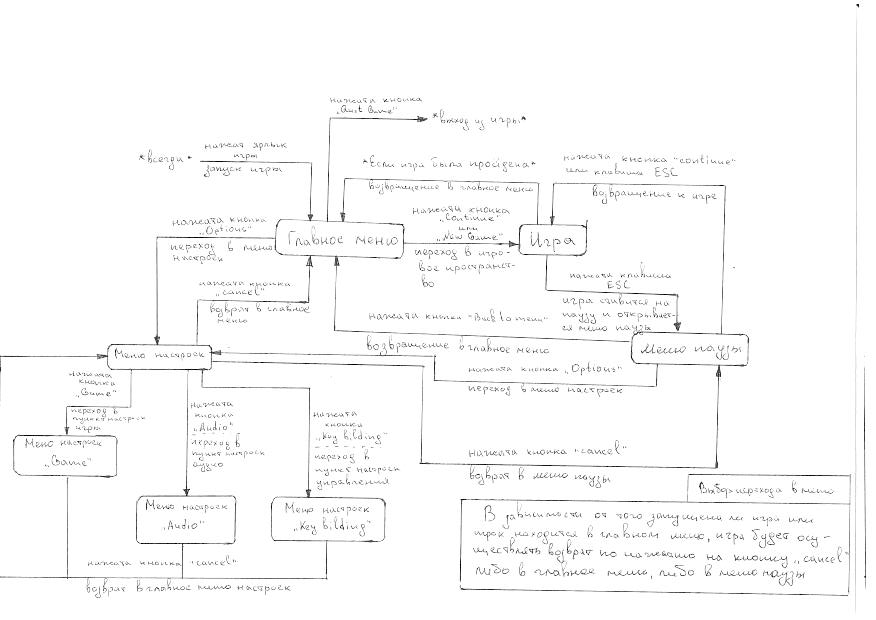 нажата кнопка
„Quit Game"
*выход из игры*
*всегда*
нажат ярлык
игры
запуск игры
*Если игра была пройдена*
возвращение в главное меню
нажата кнопка "continue"
или клавиша ESC
возвращение к игре
нажата кнопка
„Options"
переход в меню
настроек
Главное меню
нажата кнопка
„Continue"
или
„New Game"
переход в игро-
вое пространст-
во
Игра
нажата кнопка
„cancel"
возврат в главное
меню
нажата клавиша
ESC
игра ставится на
паузу и открывает-
ся меню паузы
нажата кнопка "Back to menu"
возвращение в главное меню
Меню паузы
Меню настроек
нажата кнопка „Options"
переход в меню настроек
нажата
кнопка
„Game"
переход в
пункт настроек
игры
нажата
кнопка
„Audio"
переход в
пункт настроек
аудио
нажата
кнопка
„Key bilding"
переход в
пункт настроек
управления
Меню настроек
„Game"
нажата кнопка "cancel"
возврат в меню паузы
Меню настроек
„Audio"
Меню настроек
„Key bilding"
Выбор перехода в меню
В зависимости от того запущена ли игра или
игрок находится в главном меню, игра будет осу-
ществлять возврат по нажатию на кнопку „cancel"
либо в главное меню, либо в меню паузы
нажата кнопка "cancel"
возврат в главное меню настроек